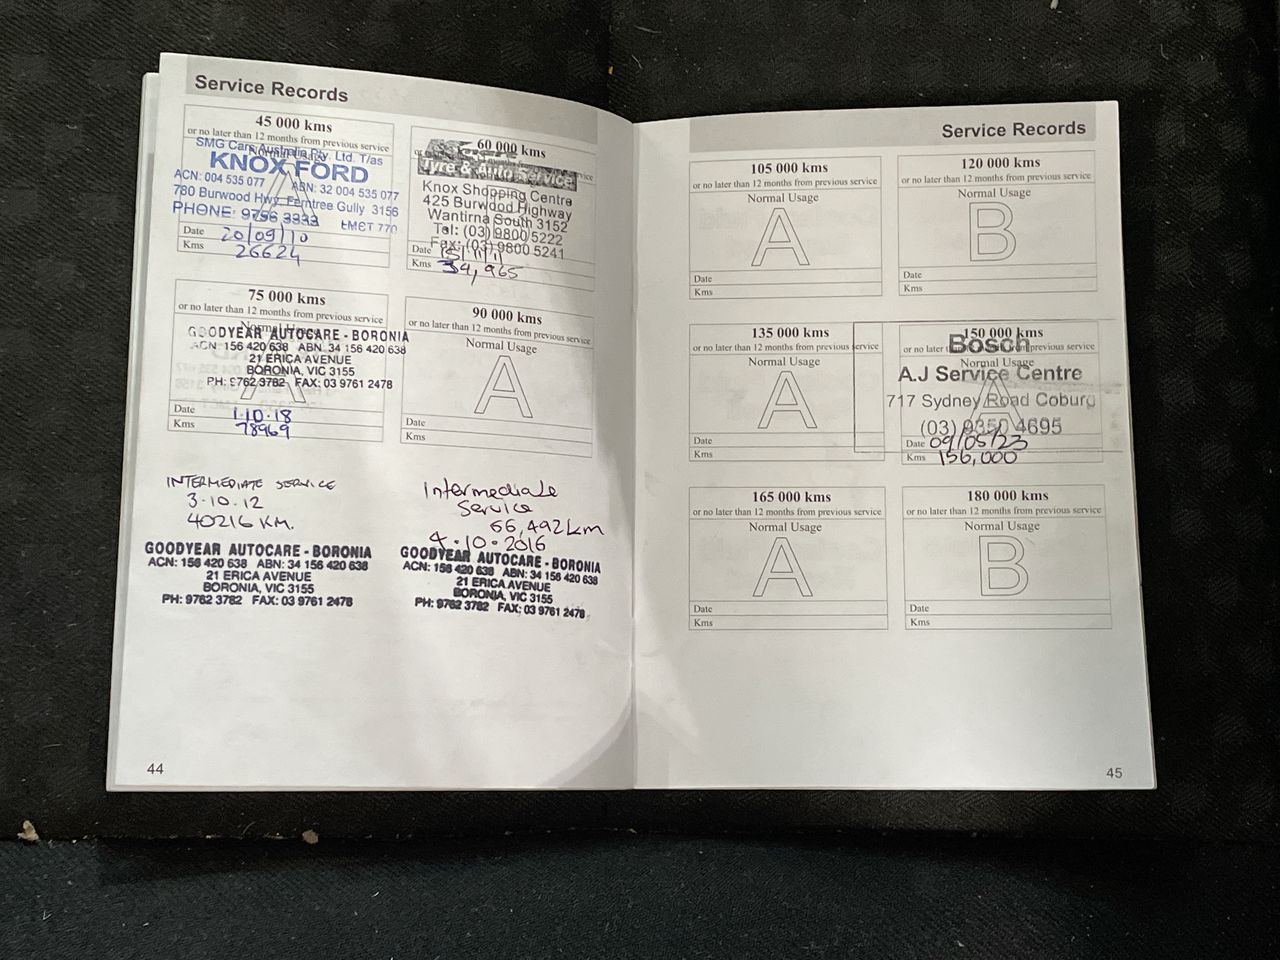 Service Records
45 000 kms
or no later than 12 months from previous service
Normal Usage
SMG Cars Australia Pty. Ltd. T/as
KNOX FORD
ACN: 004 535 077 ABN: 32 004 535 077
780 Burwood Hwy, Ferntree Gully 3156
PHONE: 9756 3333 LMCT 770
A
Date 20/09/10
Kms 26624
60 000 kms
Tyre & Auto Service
Knox Shopping Centre
425 Burwood Highway
Wantirna South 3152
Tel: (03) 9800 5222
Fax: (03) 9800 5241
Date 15/11/11
Kms 34,965
75 000 kms
or no later than 12 months from previous service
Normal Usage
GOODYEAR AUTOCARE - BORONIA
ACN: 156 420 638 ABN: 34 156 420 638
21 ERICA AVENUE
BORONIA, VIC 3155
PH: 9762 3782 FAX: 03 9761 2478
A
Date 1.10.18
Kms 78969
90 000 kms
or no later than 12 months from previous service
Normal Usage
A
Date
Kms
INTERMEDIATE SERVICE
3.10.12
40216 KM.
GOODYEAR AUTOCARE - BORONIA
ACN: 156 420 638 ABN: 34 156 420 638
21 ERICA AVENUE
BORONIA, VIC 3155
PH: 9762 3782 FAX: 03 9761 2478
Intermediate
Service
66,492km
4.10.2016
GOODYEAR AUTOCARE - BORONIA
ACN: 156 420 638 ABN: 34 156 420 638
21 ERICA AVENUE
BORONIA, VIC 3155
PH: 9762 3782 FAX: 03 9761 2478
44
Service Records
105 000 kms
or no later than 12 months from previous service
Normal Usage
A
Date
Kms
120 000 kms
or no later than 12 months from previous service
Normal Usage
B
Date
Kms
135 000 kms
or no later than 12 months from previous service
Normal Usage
A
Date
Kms
150 000 kms
or no later than 12 months from previous service
Normal Usage
Bosch
A.J Service Centre
717 Sydney Road Coburg
(03) 9350 4695
A
Date 09/05/23
Kms 156,000
165 000 kms
or no later than 12 months from previous service
Normal Usage
A
Date
Kms
180 000 kms
or no later than 12 months from previous service
Normal Usage
B
Date
Kms
45